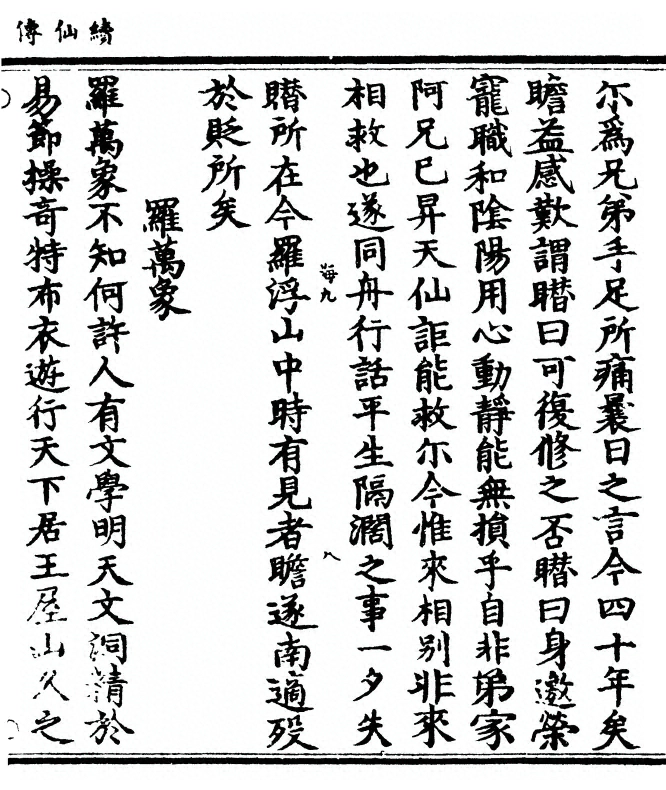 續仙傳
尓為兄弟手足所痛曩日之言今四十年矣
瞻益感歎謂䁬曰可復修之否䁬曰身邀榮
寵職和陰陽用心動靜能無損乎自非弟家
阿兄已昇天仙詎能救尓今惟來相別非來
相救也遂同舟行話平生隔濶之事一夕失
䁬所在今羅浮山中時有見者瞻遂南適歿
於貶所矣
羅萬象
羅萬象不知何許人有文學明天文洞精於
易節操奇特布衣遊行天下居王屋山久之
海九
八